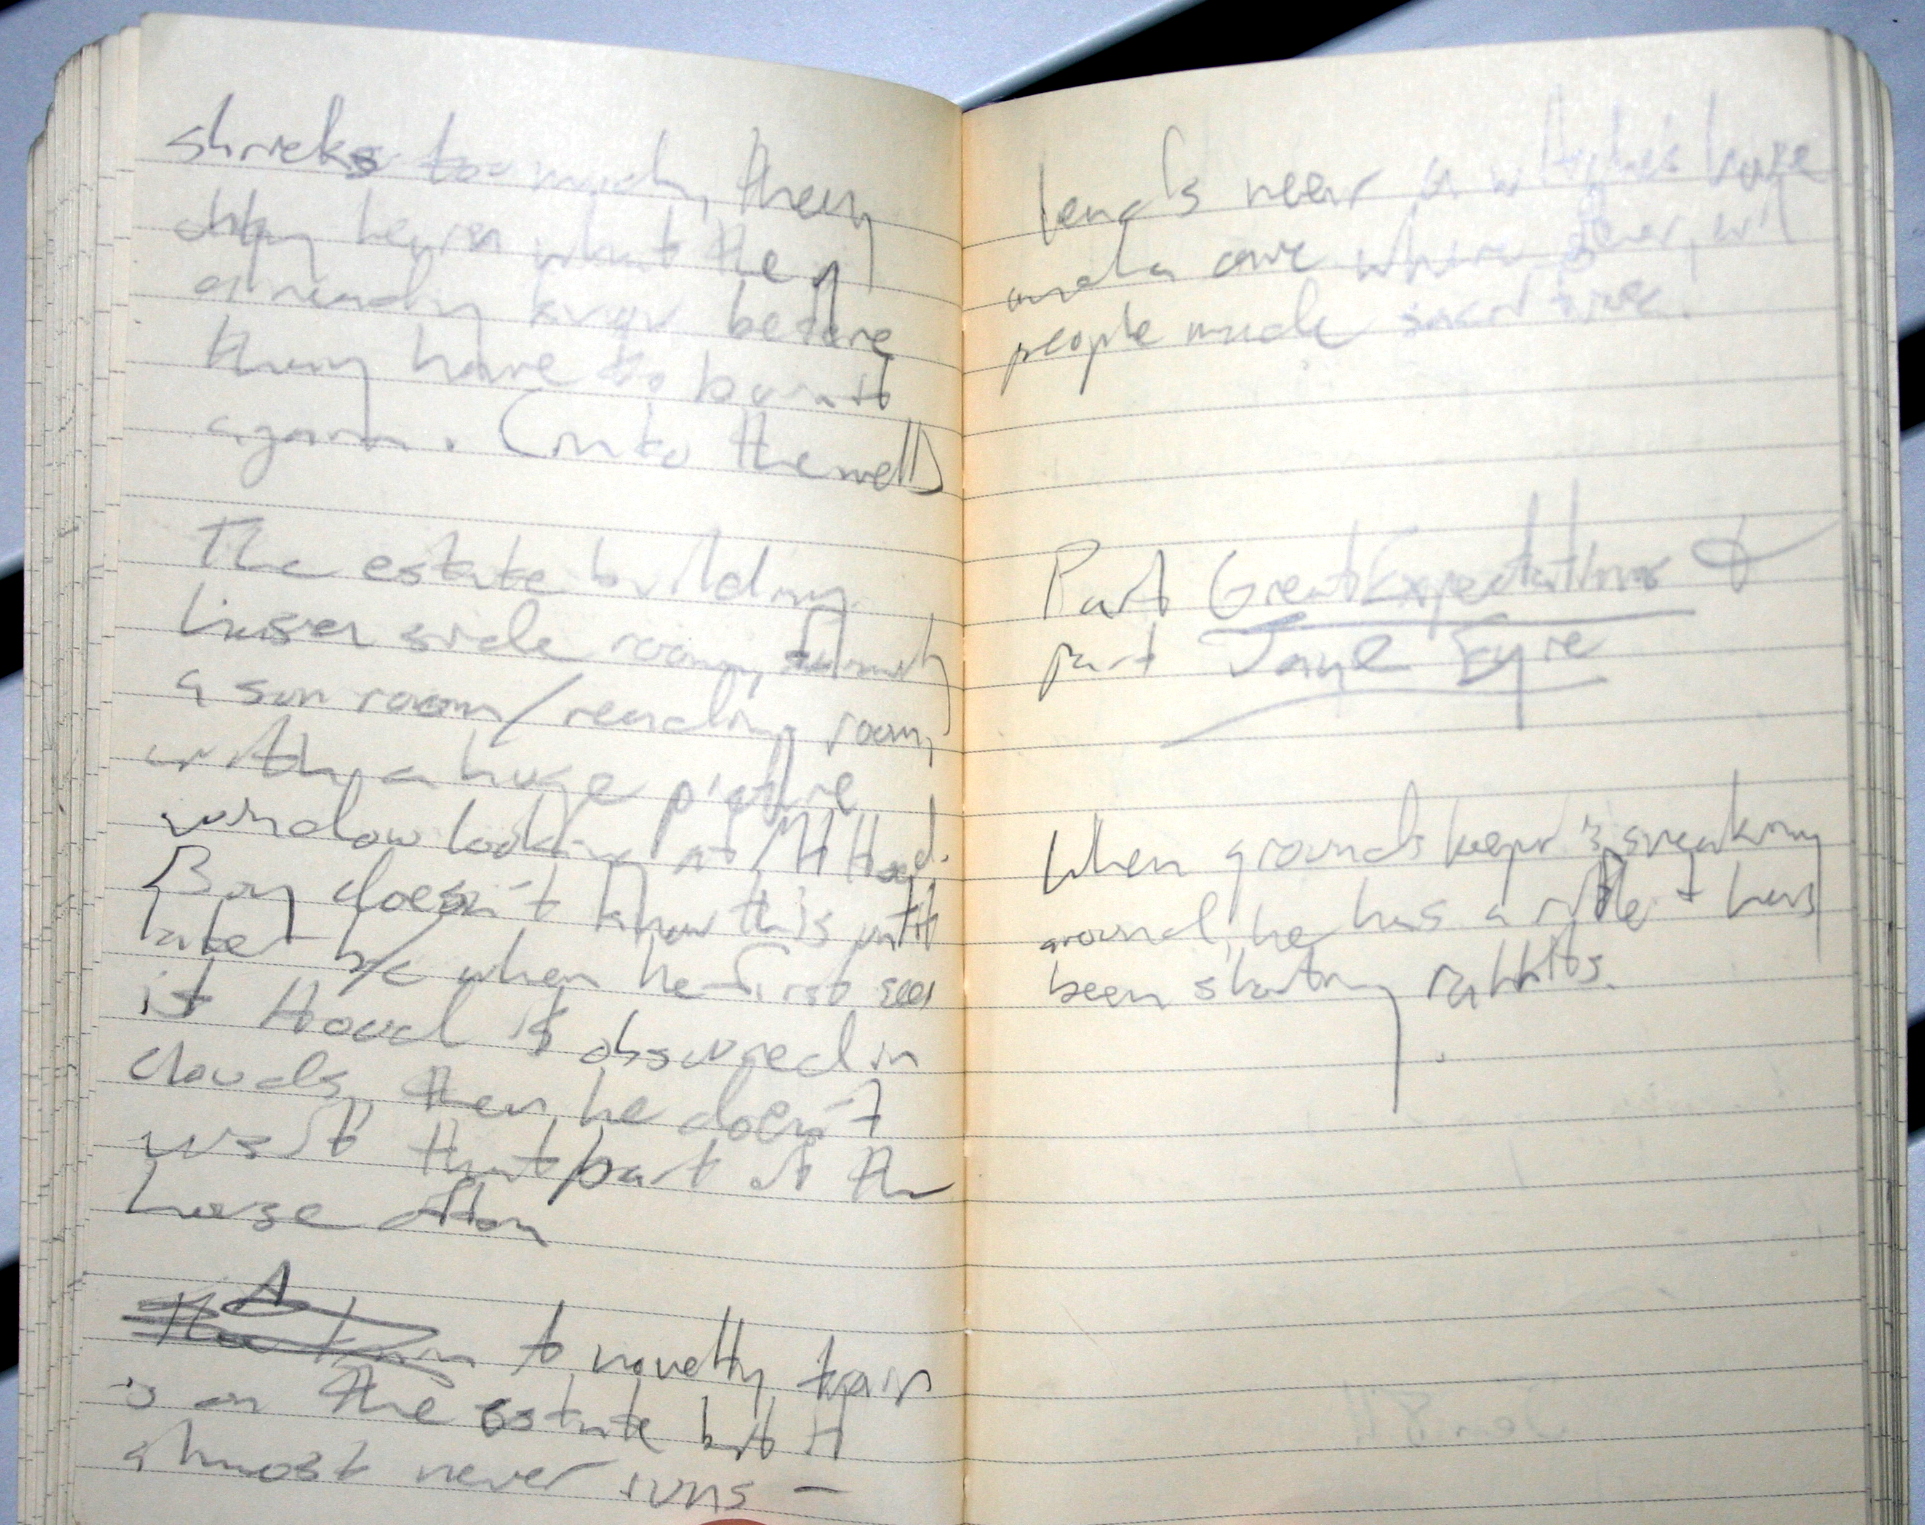 shrieks too much, they
they learn what they
already know before
they have to burn it
again. (into the well)
The estate building
side room,
a sun room/reading room,
with a huge picture
window looking at Mt Hood.
Boy doesn't know this until
later b/c when he first sees
it Hood is obscured in
clouds, then he doesn't
visit that part of the
house often
A novelty train
is on the estate but it
almost never runs –
lands near a house
and a cave where
people made sacrifices.
Part Great Expectations &
part Jane Eyre
When grounds keeper is sneaking
around, he has a rifle & has
been shooting rabbits.